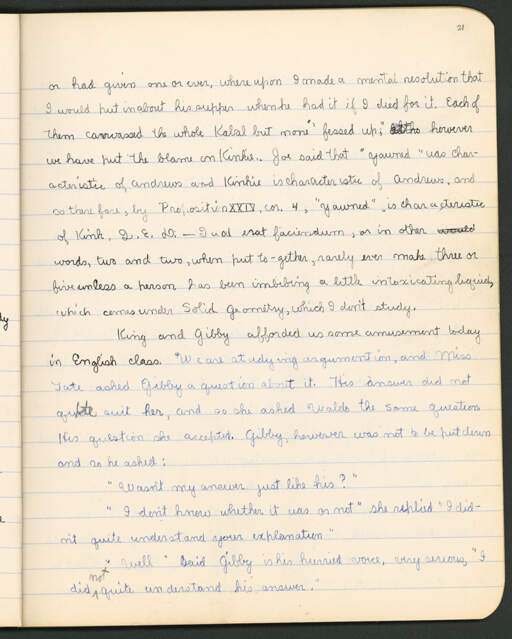 21
or had given one or ever, where upon I made a mental resolution that
I would put in about his supper when he had it if I died for it. Each of
them canvassed the whole Kalal but none "fessed up;" however
we have put the blame on Kinkie. Joe said that "yawned" was char-
acteristic of Andrews and Kinkie is characteristic of Andrews, and
so there fore, by Proposition XXIV, cor. 4, "yawned", is characteristic
of Kink. Q. E. D. — Quod erat faciendum, or in other would
words, two and two, when put to-gether, rarely ever make three or
five unless a person has been imbibing a little intoxicating liquid,
which comes under Solid Geometry, which I don't study.
King and Gibby afforded us some amusement today
in English class. We are studying argumention, and Miss
Tate asked Gibby a question about it. His answer did not
quite suit her, and so she asked Waldo the same question
His question she accepted. Gibby, however was not to be put down
and so he asked:
"Wasn't my answer just like his?"
"I don't know whether it was or not" she replied "I did-
n't quite understand your explanation"
"Well" Said Gibby in his hurried voice, very serious, "I
did not quite understand his answer."